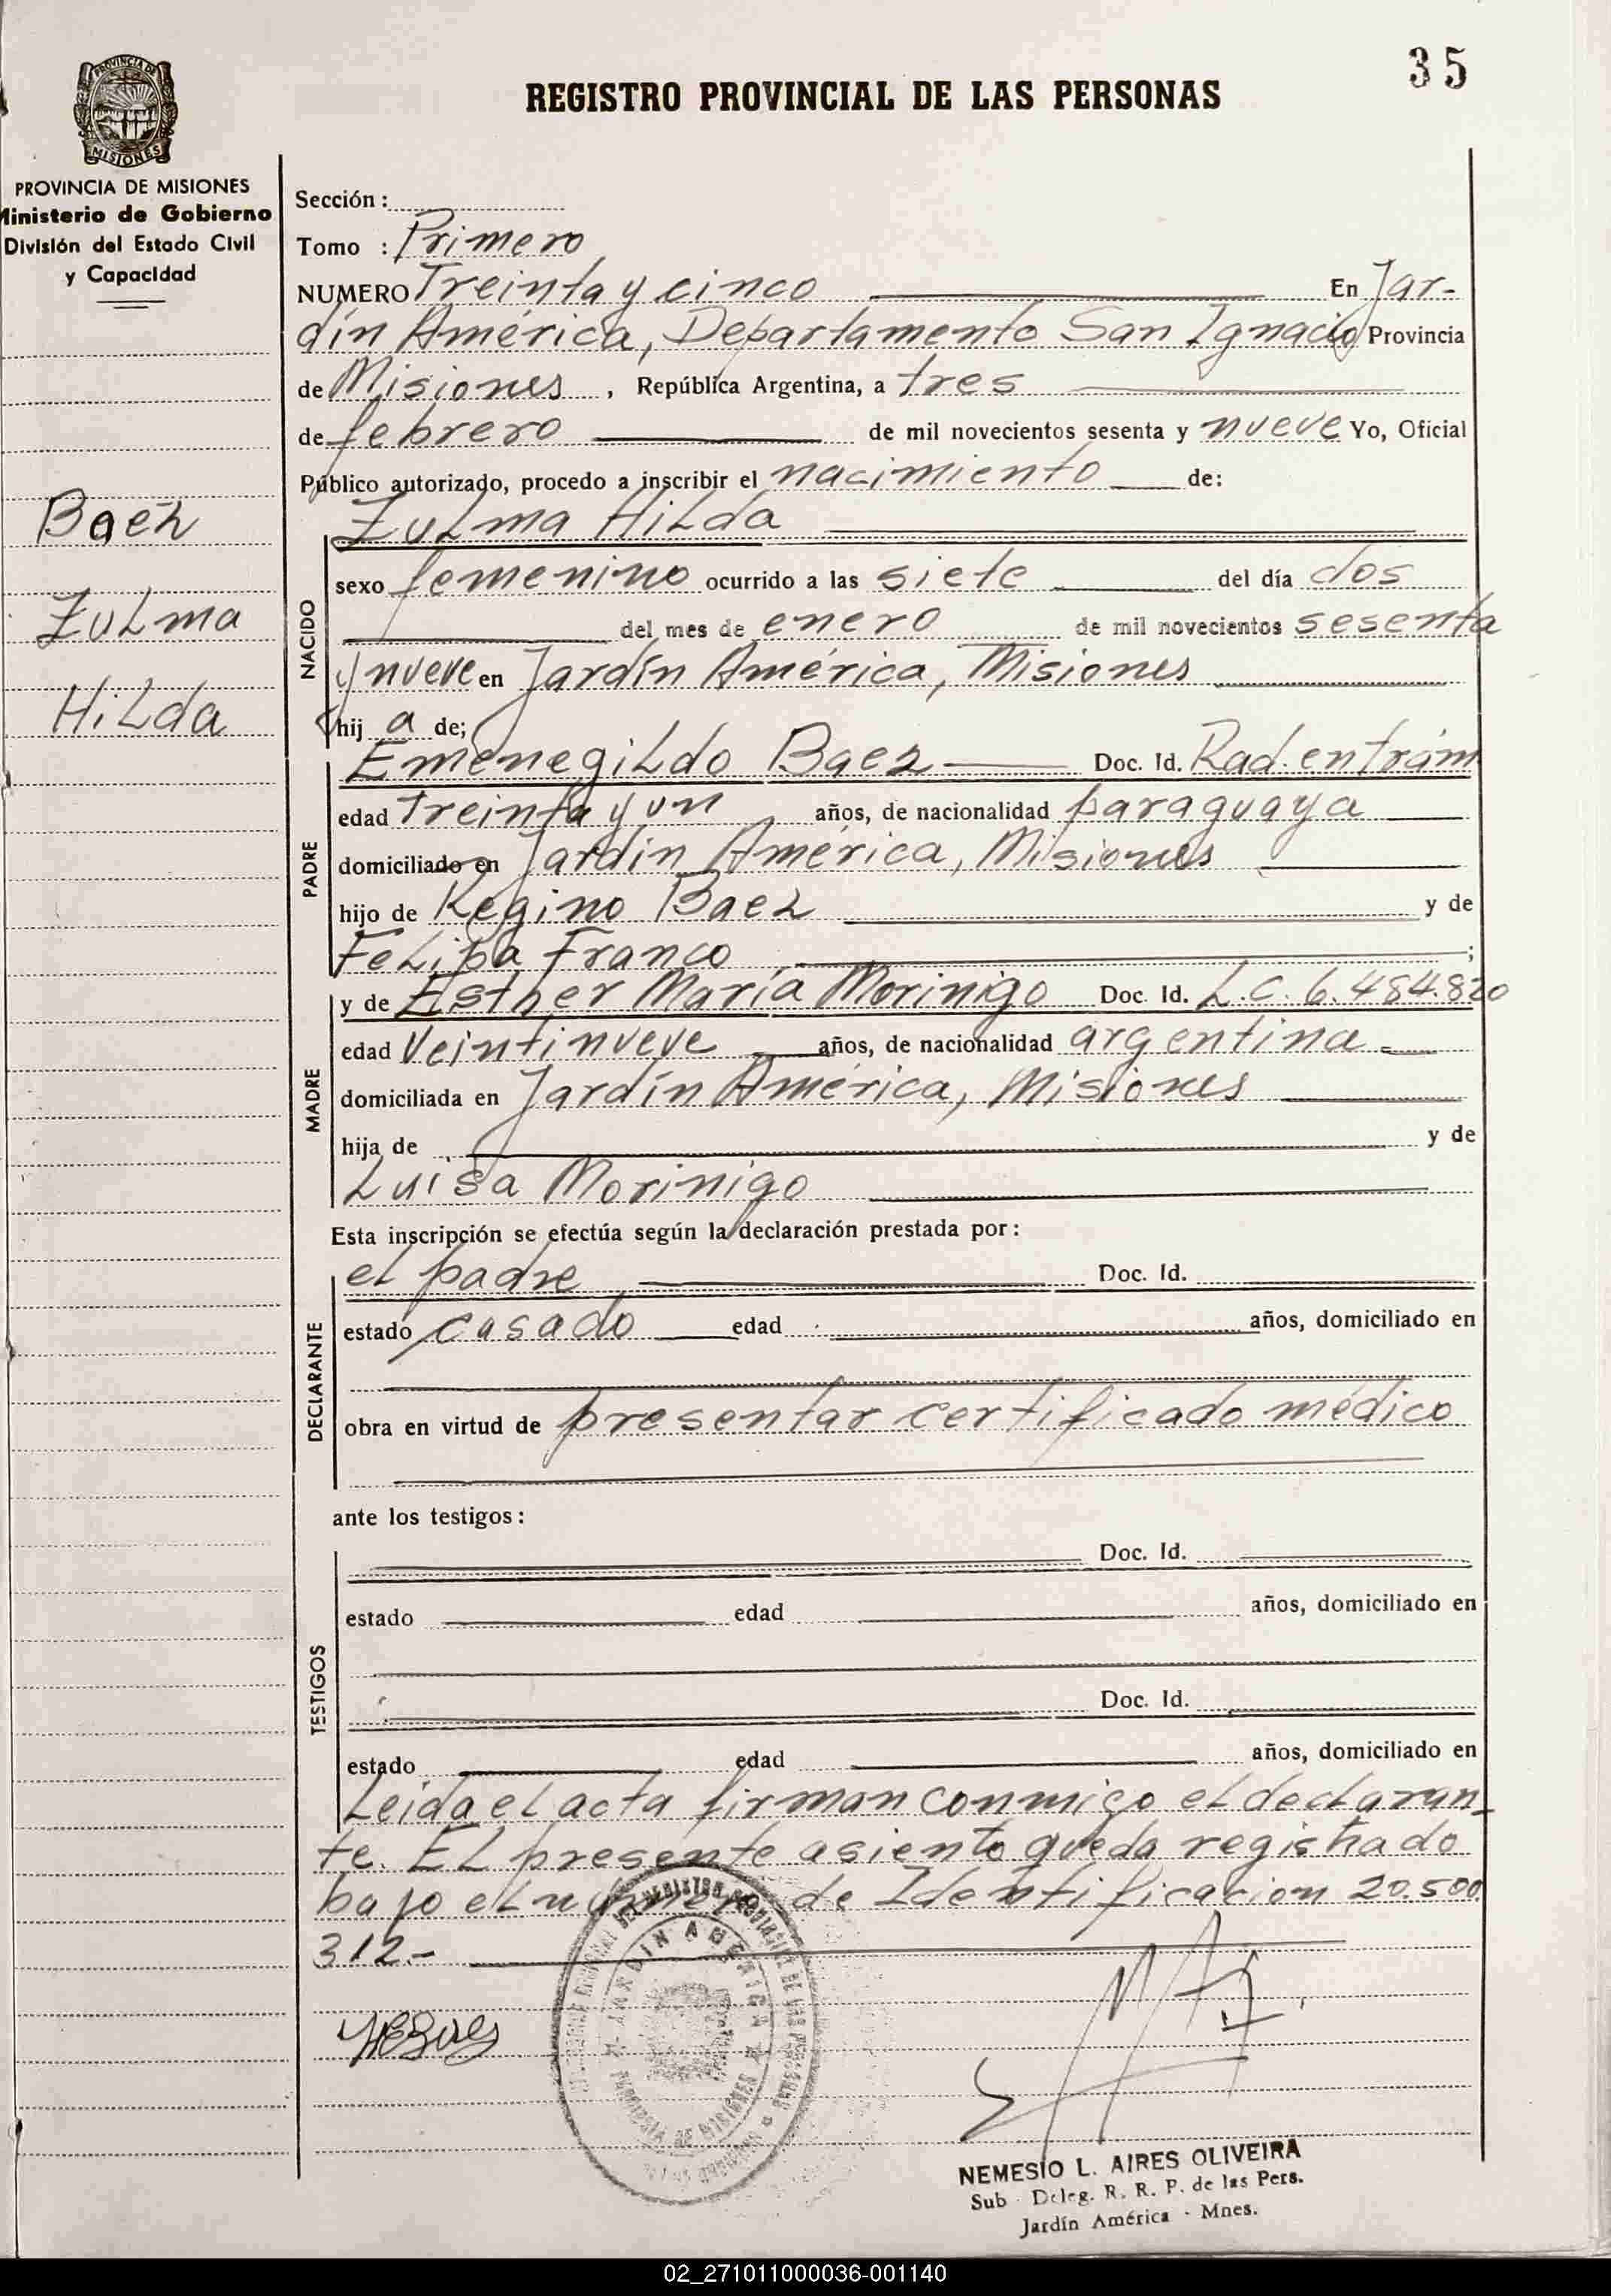 35
REGISTRO PROVINCIAL DE LAS PERSONAS
PROVINCIA DE
MISIONES
PROVINCIA DE MISIONES
Ministerio de Gobierno
División del Estado Civil
y Capacidad
Baez
Zulma
Hilda
Sección:
Tomo : Primero
NUMERO Treinta y cinco En Jar-
dín América, Departamento San Ignacio Provincia
de Misiones , República Argentina, a tres
de febrero de mil novecientos sesenta y nueve Yo, Oficial
Público autorizado, procedo a inscribir el nacimiento de:
NACIDO
Zulma Hilda
sexo femenino ocurrido a las siete del día dos
del mes de enero de mil novecientos sesenta
y nueve en Jardín América, Misiones
hij a de;
PADRE
Emenegildo Baez Doc. Id. Rad. entrám
edad treinta y un años, de nacionalidad paraguaya
domiciliado en Jardín América, Misiones
hijo de Regino Baez y de
Felipa Franco ;
MADRE
y de Esther María Morinigo Doc. Id. L.C. 6.484.820
edad Veintinueve años, de nacionalidad argentina
domiciliada en Jardín América, Misiones
hija de y de
Luisa Morinigo
Esta inscripción se efectúa según la declaración prestada por:
DECLARANTE
el padre Doc. Id.
estado casado edad años, domiciliado en
obra en virtud de presentar certificado médico
ante los testigos:
TESTIGOS
Doc. Id.
estado edad años, domiciliado en
Doc. Id.
estado edad años, domiciliado en
Leida el acta firman conmigo el declaran-
te. El presente asiento queda registrado
bajo el numero de Identificacion 20.500
312.-
JARDIN AMERICA
PROVINCIA DE MISIONES
NEMESIO L. AIRES OLIVEIRA
Sub - Deleg. R. R. P. de las Pers.
Jardín América - Mnes.
02_271011000036-001140